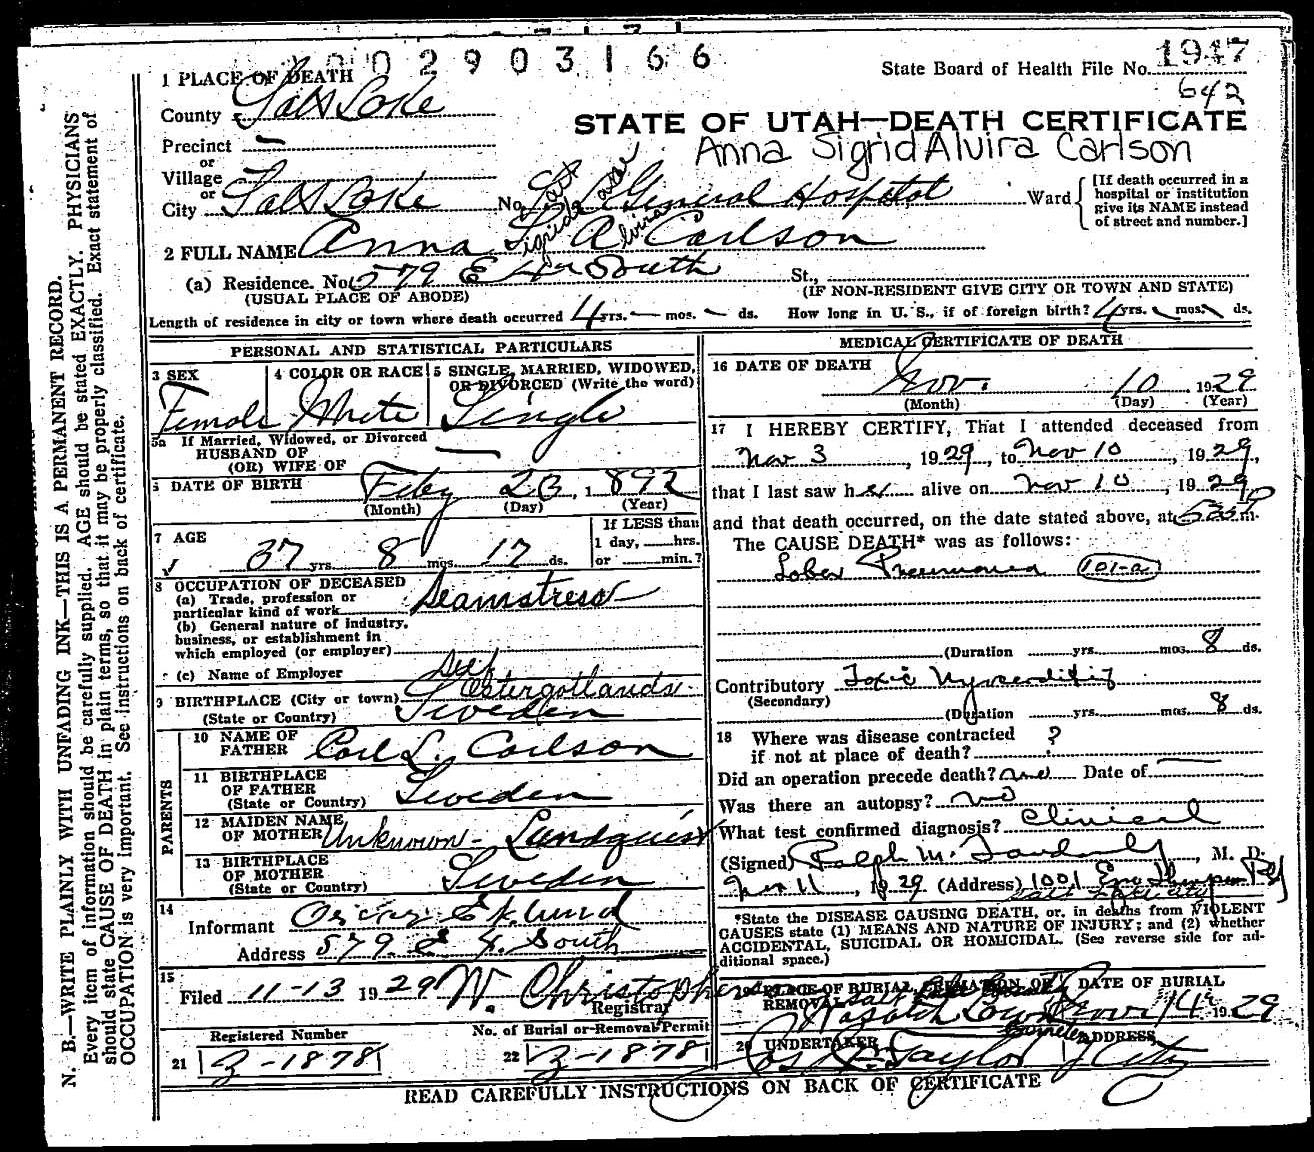 002903166
State Board of Health File No. 1947
642
1 PLACE OF DEATH
County Salt Lake
STATE OF UTAH—DEATH CERTIFICATE
Anna Sigrid Alvira Carlson
Precinct —
or
Village
or
City Salt Lake No. Salt Lake General Hospital Ward
[If death occurred in a
hospital or institution
give its NAME instead
of street and number.]
2 FULL NAME Anna Sigride A Alvira Carlson
(a) Residence. No. 579 E 4th South St.,
(USUAL PLACE OF ABODE) (IF NON-RESIDENT GIVE CITY OR TOWN AND STATE)
Length of residence in city or town where death occurred 4 yrs. — mos. — ds. How long in U. S., if of foreign birth? 4 yrs. mos. ds.
PERSONAL AND STATISTICAL PARTICULARS
3 SEX 4 COLOR OR RACE 5 SINGLE, MARRIED, WIDOWED,
OR DIVORCED (Write the word)
Female White Single
5a If Married, Widowed, or Divorced
HUSBAND OF
(OR) WIFE OF —
DATE OF BIRTH Feby 23, 1892
(Month) (Day) (Year)
7 AGE
If LESS than
1 day, hrs.
or min.?
37 yrs. 8 mos. 17 ds.
8 OCCUPATION OF DECEASED
(a) Trade, profession or
particular kind of work Seamstress
(b) General nature of industry,
business, or establishment in
which employed (or employer)
(c) Name of Employer Self
9 BIRTHPLACE (City or town) Ostergotlands
(State or Country) Sweden
PARENTS
10 NAME OF
FATHER Carl L. Carlson
11 BIRTHPLACE
OF FATHER
(State or Country) Sweden
12 MAIDEN NAME
OF MOTHER Unknown - Lundquist
13 BIRTHPLACE
OF MOTHER
(State or Country) Sweden
14
Informant Oscar Eklund
Address 579 E 4. South
15
Filed 11-13 1929 W. Christophers
Registrar
Registered Number No. of Burial or Removal Permit
21 Z-1878 22 Z-1878
MEDICAL CERTIFICATE OF DEATH
16 DATE OF DEATH
Nov. 10, 1929
(Month) (Day) (Year)
17 I HEREBY CERTIFY, That I attended deceased from
Nov 3, 1929, to Nov 10, 1929,
that I last saw her alive on Nov 10, 1929
and that death occurred, on the date stated above, at 530P m.
The CAUSE DEATH* was as follows:
Lober Pneumonia 101-a
(Duration yrs. mos. 8 ds.
Contributory Toxic Myocarditis
(Secondary)
(Duration yrs. mos. 8 ds.
18 Where was disease contracted
if not at place of death? ?
Did an operation precede death? no Date of —
Was there an autopsy? no
What test confirmed diagnosis? Clinical
(Signed) Ralph M. , M. D.
Nov 11, 1929 (Address) 1001
Salt Lake City
*State the DISEASE CAUSING DEATH, or, in deaths from VIOLENT
CAUSES state (1) MEANS AND NATURE OF INJURY; and (2) whether
ACCIDENTAL, SUICIDAL OR HOMICIDAL. (See reverse side for ad-
ditional space.)
19 PLACE OF BURIAL, CREMATION OR
REMOVAL
DATE OF BURIAL
Salt Lake
Wasatch Lawn Nov 14, 1929
Cemetery
20 UNDERTAKER ADDRESS
Jos E Taylor City
READ CAREFULLY INSTRUCTIONS ON BACK OF CERTIFICATE
N. B.—WRITE PLAINLY WITH UNFADING INK—THIS IS A PERMANENT RECORD.
Every item of information should be carefully supplied. AGE should be stated EXACTLY. PHYSICIANS
should state CAUSE OF DEATH in plain terms, so that it may be properly classified. Exact statement of
OCCUPATION is very important. See instructions on back of certificate.